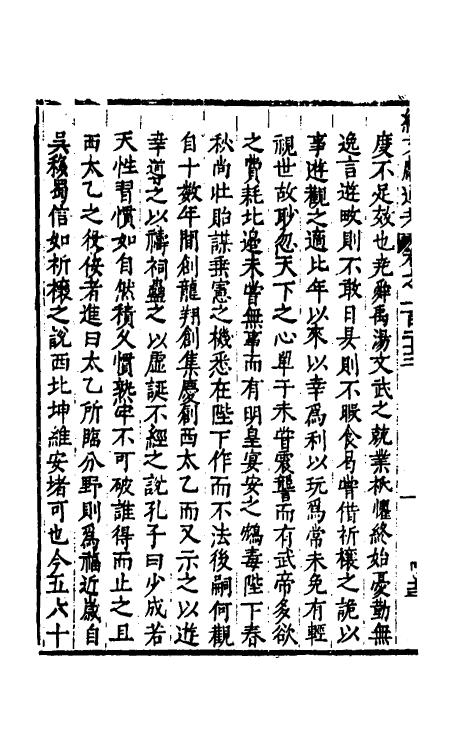 度不足效也堯舜禹湯文武之就業祇懼終始憂勤無
逸言遊畋則不敢日昃則不暇食曷嘗借祈禳之說以
事遊觀之適比年以來以幸為利以玩為常未免有輕
視世故眇忽天下之心單于未嘗震讋而有武帝多欲
之費耗北邊未嘗無事而有明皇宴安之鴆毒陛下春
秋尚壯貽謀垂憲之機悉在陛下作而不法後嗣何觀
自十數年間創龍翔創集慶創西太乙而又示之以遊
幸導之以禱祠蠱之以虛誕不經之說孔子曰少成若
天性習慣如自然積久慣熟牢不可破誰得而止之且
西太乙之役佞者進曰太乙所臨分野則為福近歲自
吳移蜀信如祈禳之說西北坤維安堵可也今五六十